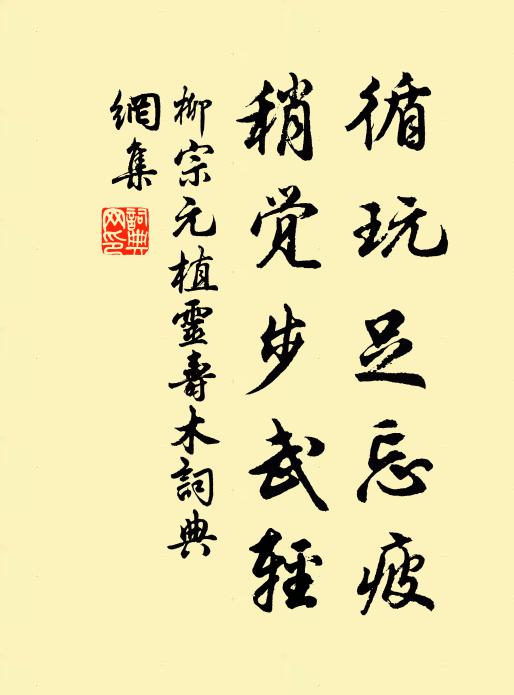 循玩足忘疲
稍觉步武輕
柳宗元植靈壽木詞典
網集
詞典
网印